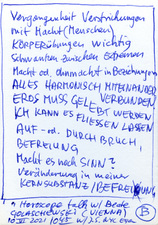 Vergangenheit Verstrickungen
mit Macht (Menschen)
KÖRPERÜBUNGEN wichtig
Schwanken zwischen Extremen
Macht od. Ohnmacht in Beziehungen
ALLES HARMONISCH MITEINANDER
EROS MUSS GELEBT WERDEN
ICH KANN ES FLIESSEN LASSEN
AUF- od. DURCHBRUCH,
BEFREIUNG
Macht es noch SINN?
Veränderung in meiner
KERNSUBSTANZ / BEFREIUNG
HOROSCOPE talk w/ Beate
(VIENNA)
B